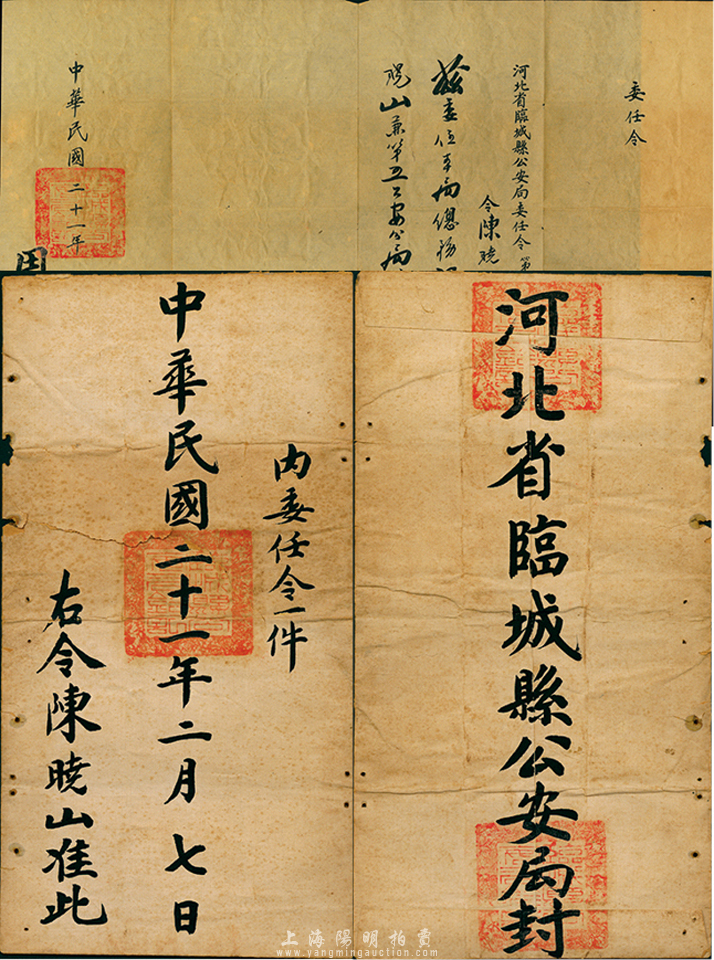 委任令
河北省臨城縣公安局委任令 第
令陳曉
茲委任本局總務
曉山兼第五公安分局
中華民國二十一年
河北省臨城縣公安局封
内委任令一件
中華民國二十一年二月七日
右令陳曉山准此
上海陽明拍賣
www.yangmingauction.com